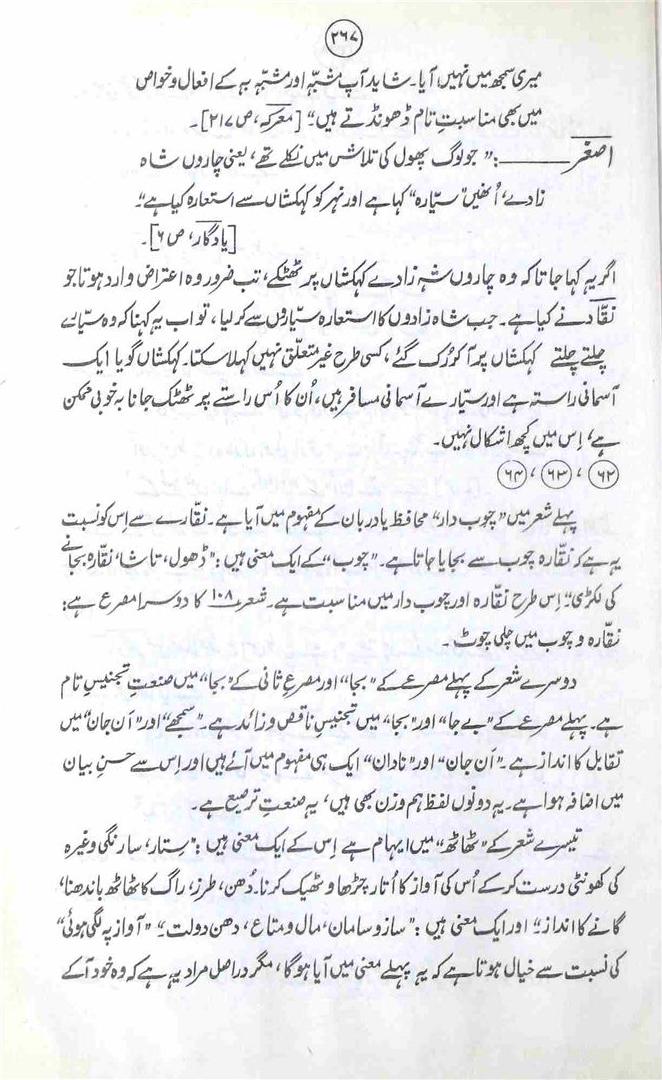 ۲۶۷
میری سمجھ میں نہیں آیا۔ شاید آپ مشبّہ اور مشبّہ بہ کے افعال و خواص
میں بھی مناسبتِ تام ڈھونڈتے ہیں" [معرکہ، ص ۲۱۷]۔
اصغر ــــــــــ: "جو لوگ پھول کی تلاش میں نکلے تھے، یعنی چاروں شاہ
زادے، اُنھیں "سیّارہ" کہا ہے اور نہر کو کہکشاں سے استعارہ کیا ہے"۔
[یادگار، ص ۶]۔
اگر یہ کہا جاتا کہ وہ چاروں شہ زادے کہکشاں پر ٹھٹکے، تب ضرور وہ اعتراض وارد ہوتا جو
نقّاد نے کیا ہے۔ جب شاہ زادوں کا استعارہ سیّاروں سے کر لیا، تو اب یہ کہنا کہ وہ سیّارے
چلتے چلتے کہکشاں پر آکر رُک گئے، کسی طرح غیر متعلّق نہیں کہلا سکتا۔ کہکشاں گویا ایک
آسمانی راستہ ہے اور سیّارے آسمانی مسافر ہیں، اُن کا اُس راستے پر ٹھٹک جانا بہ خوبی ممکن
ہے، اِس میں کچھ اشکال نہیں۔
۶۲، ۶۳، ۶۴
پہلے شعر میں "چوب دار" محافظ یا دربان کے مفہوم میں آیا ہے۔ نقّارے سے اِس کو نسبت
یہ ہے کہ نقّارہ چوب سے بجایا جاتا ہے۔ "چوب" کے ایک معنی ہیں: "ڈھول، تاشا، نقّارہ بجانے
کی لکڑی"۔ اِس طرح نقّارہ اور چوب دار میں مناسبت ہے۔ شعر ۱۰۸ کا دوسرا مصرع ہے:
نقّارہ و چوب میں چلی چوٹ۔
دوسرے شعر کے پہلے مصرعے کے "بجا" اور مصرعِ ثانی کے "بجا" میں صنعتِ تجنیسِ تام
ہے۔ پہلے مصرعے کے "بے جا" اور "بجا" میں تجنیسِ ناقص و زائد ہے۔ "سمجھے" اور "اَن جان" میں
تقابل کا انداز ہے۔ "اَن جان" اور "نادان" ایک ہی مفہوم میں آئے ہیں اور اِس سے حسنِ بیان
میں اضافہ ہوا ہے۔ یہ دونوں لفظ ہم وزن بھی ہیں، یہ صنعتِ ترصیع ہے۔
تیسرے شعر کے "ٹھاٹھ" میں ایہام ہے اِس کے ایک معنی ہیں: "سِتار، سارنگی وغیرہ
کی کھونٹی درست کر کے اُس کی آواز کا اُتار چڑھاو ٹھیک کرنا۔ دُھن، طرز، راگ کا ٹھاٹھ باندھنا،
گانے کا انداز"۔ اور ایک معنی ہیں: "ساز و سامان، مال و متاع، دھن دولت"۔ "آواز پہ لگی ہوئی"
کی نسبت سے خیال ہوتا ہے کہ یہ پہلے معنی میں آیا ہوگا، مگر دراصل مراد یہ ہے کہ وہ خود آ کے